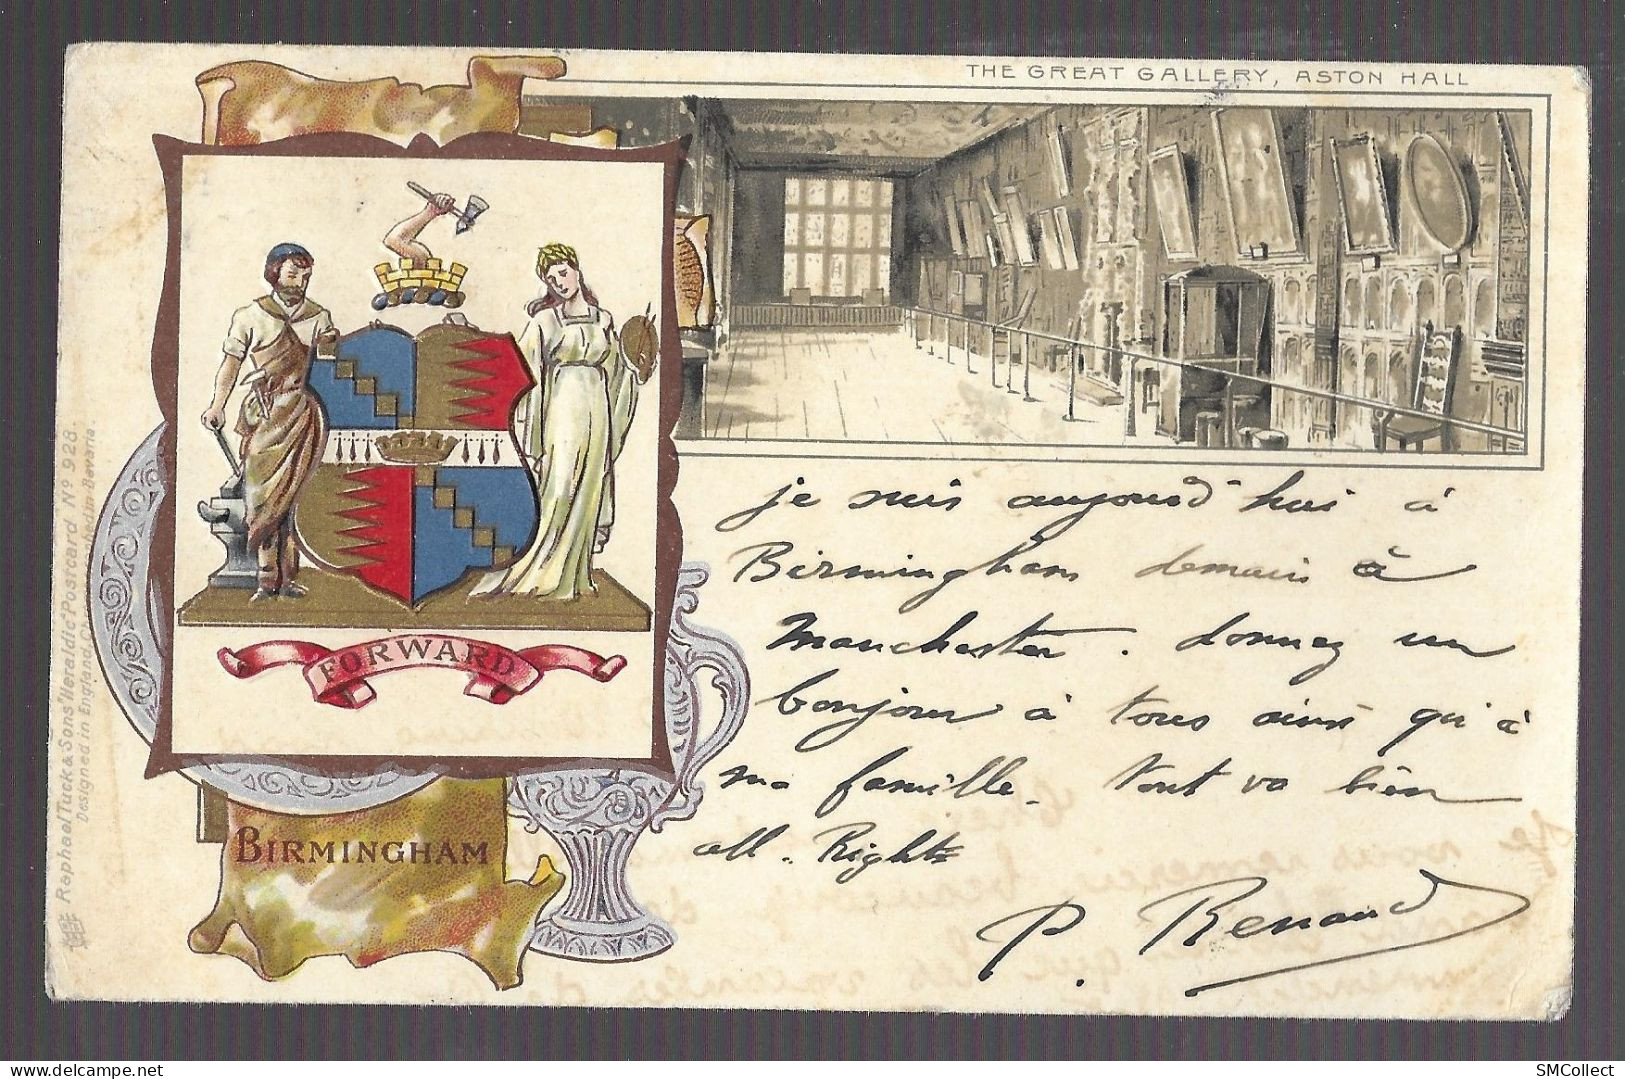 THE GREAT GALLERY, ASTON HALL
FORWARD
BIRMINGHAM
Raphael Tuck & Sons' "Heraldic" Postcard Nº 928.
Designed in England, Chromographed in Bavaria.
je suis aujourd'hui à
Birmingham demain à
Manchester. donnez un
bonjour à tous ainsi qu'à
ma famille. tout va bien
all. Right
P. Renaud
SMCollect